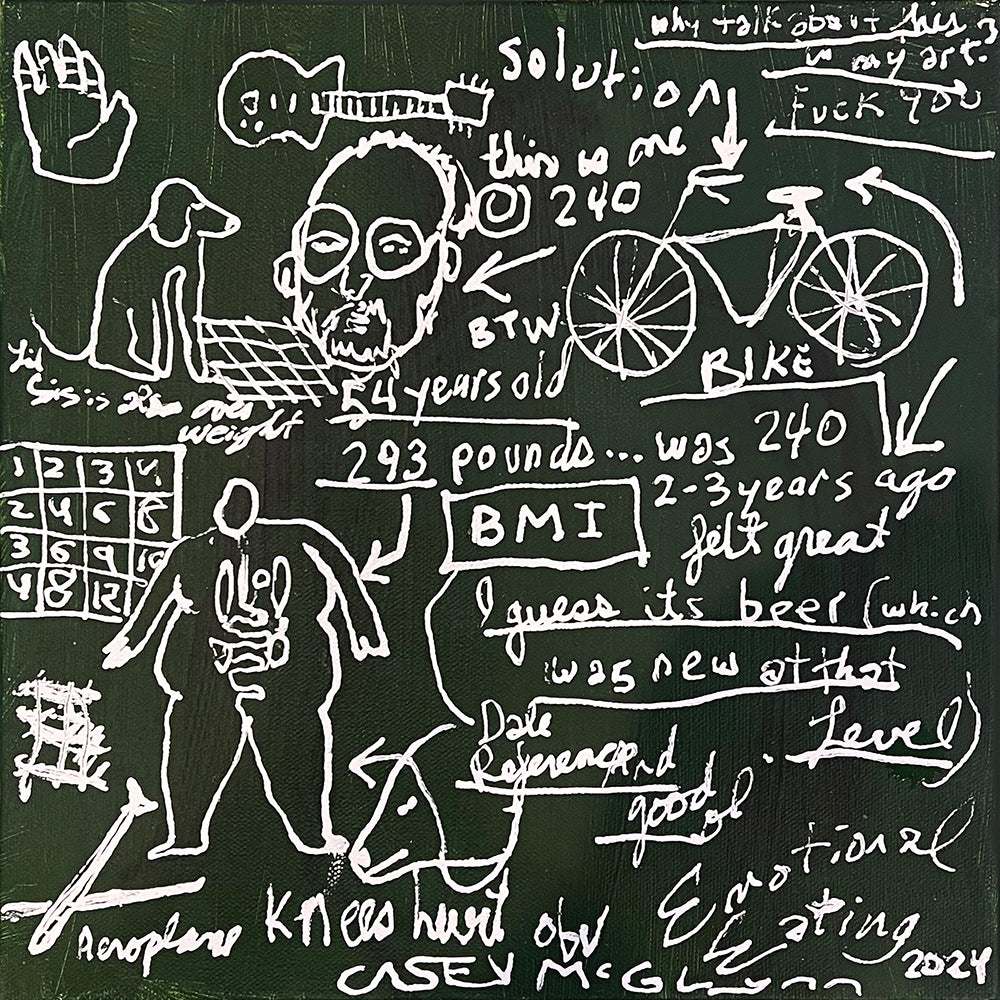 why talk about this
in my art?
Fuck you
Solution
this is me
@ 240
BTW
54 years old
BIKE
Lil
Sis is also over
weight
293 pounds... was 240
2-3 years ago
felt great
BMI
1 2 3 4
2 4 6 8
3 6 9 12
4 8 12
I guess its beer (which
was new at that
Level)
Date
Referenced
And
good ol
Emotional
Eating
Aeroplane
Knees hurt obv
CASEY McGLYNN
2024